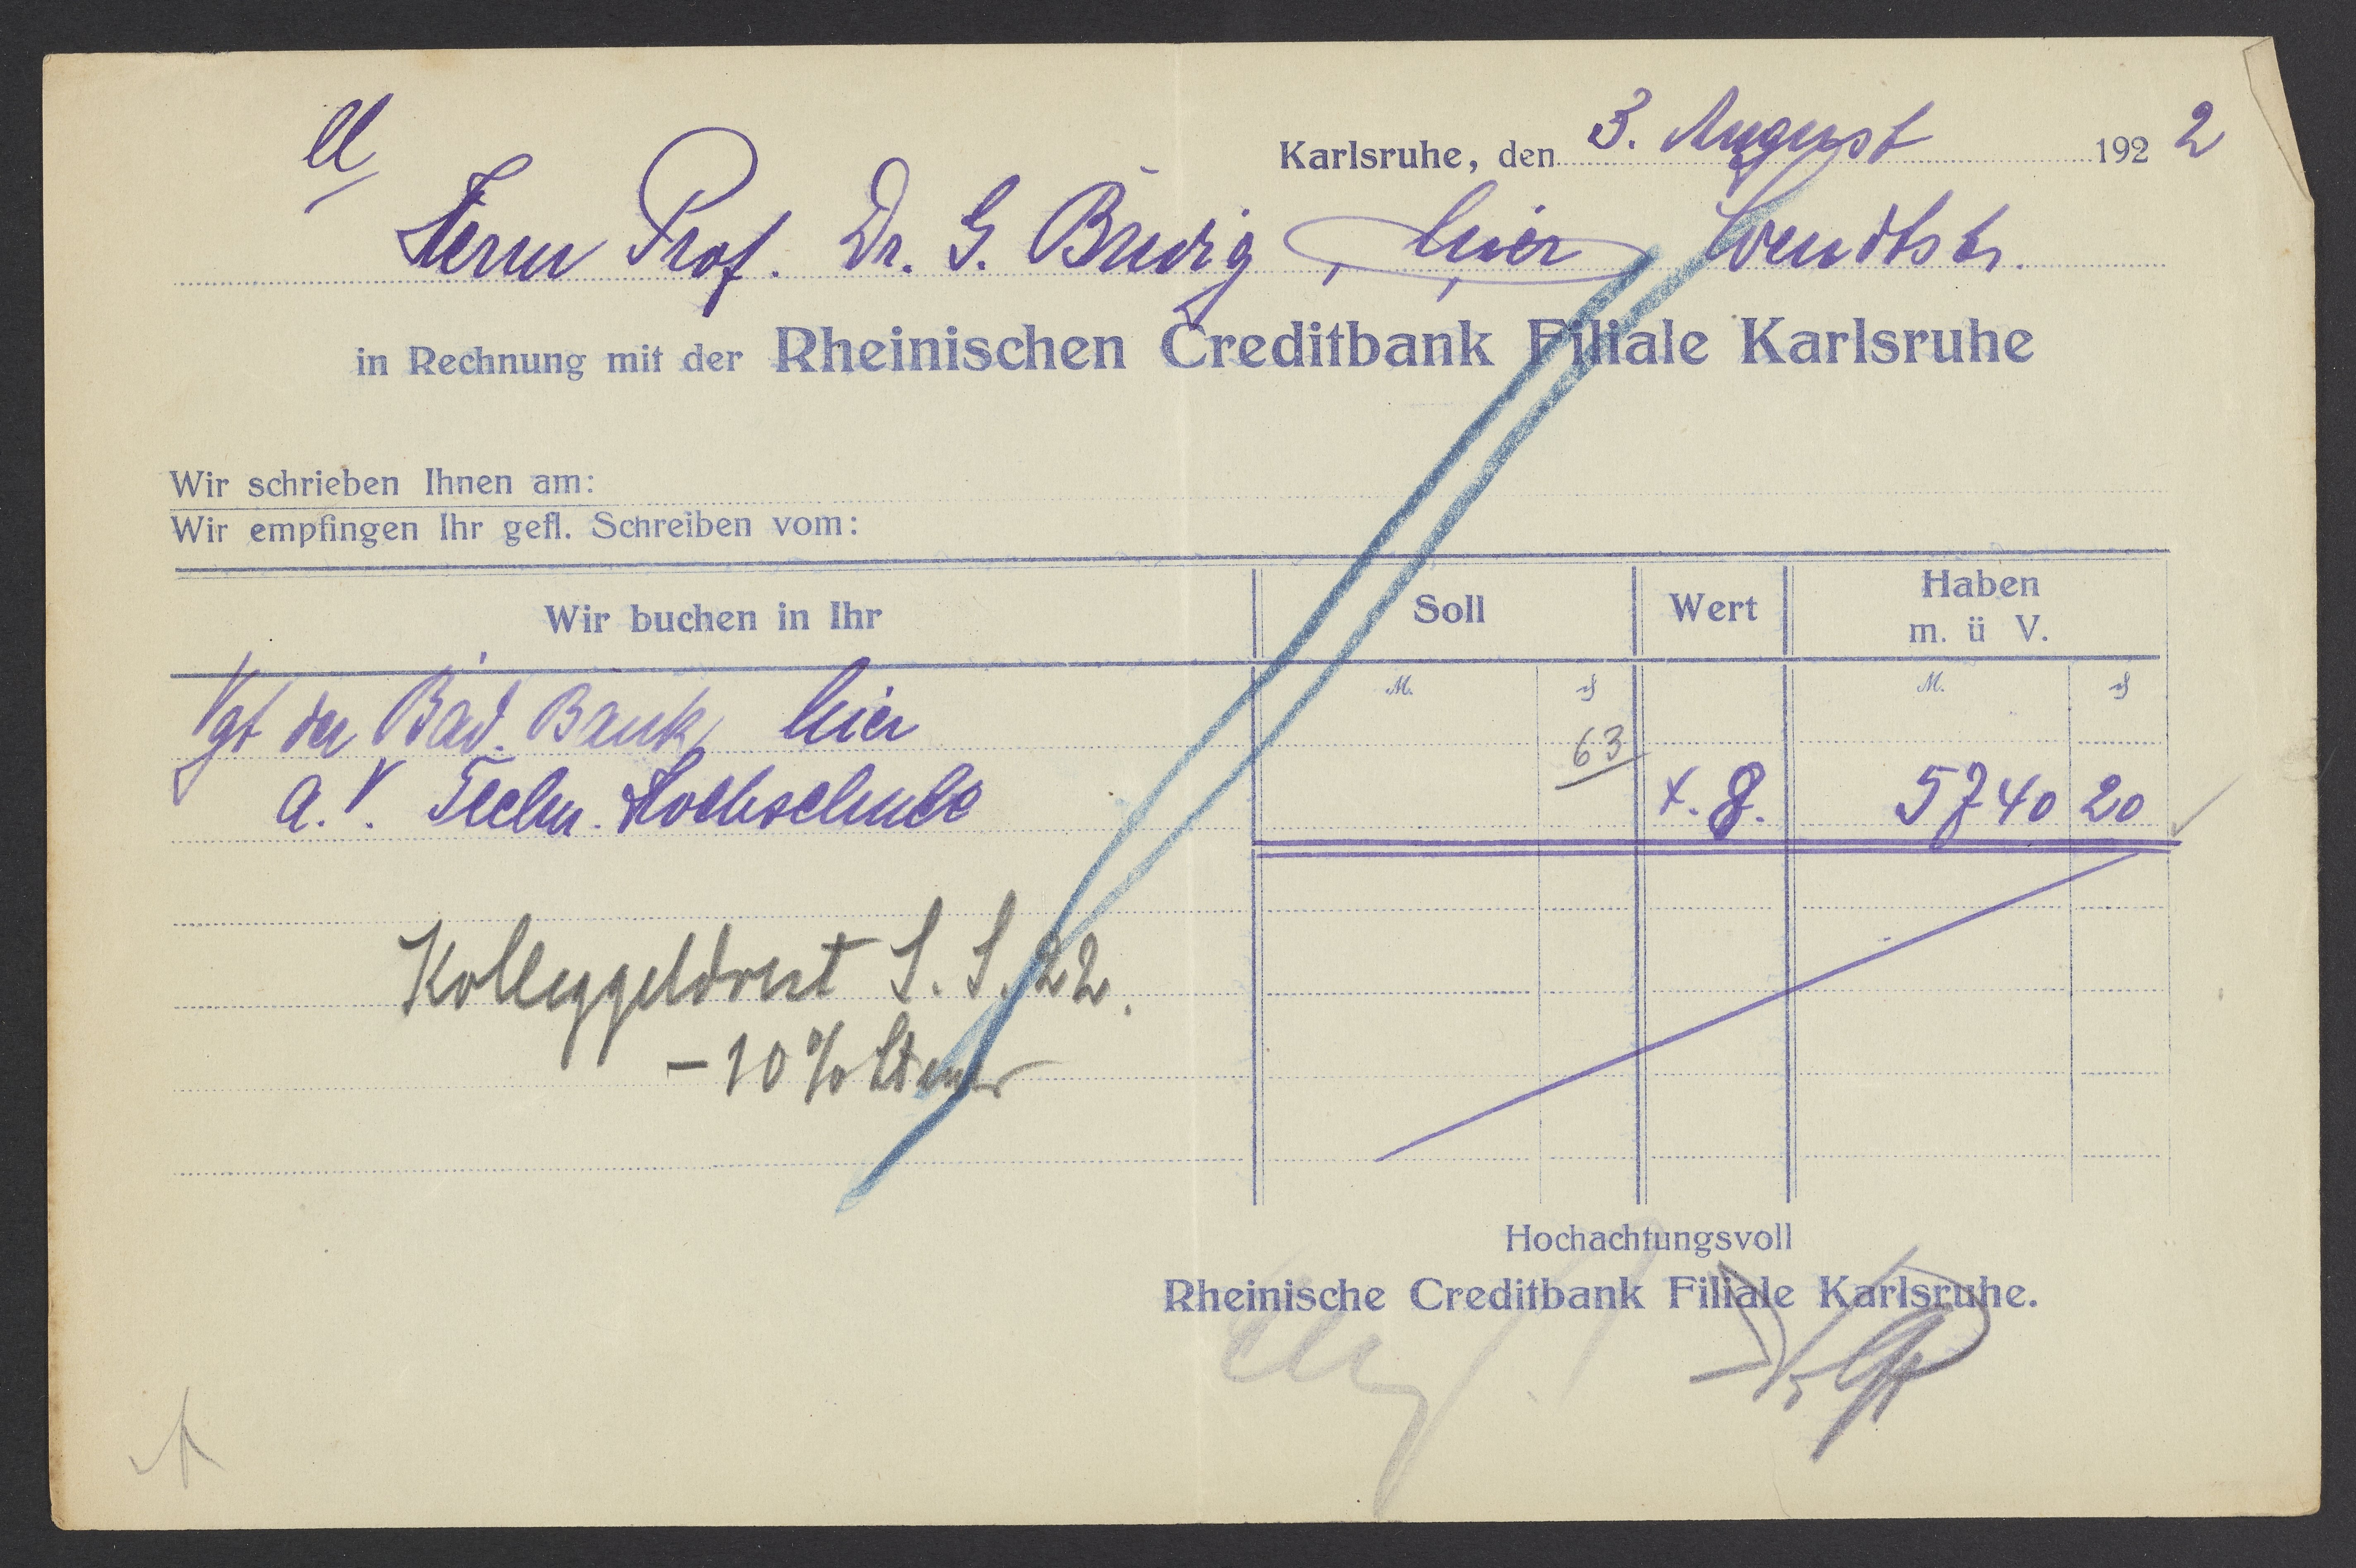 Karlsruhe, den 3. August 1922
Herrn Prof. Dr. G. Bredig, hier Wendtstr.
in Rechnung mit der Rheinischen Creditbank Filiale Karlsruhe
Wir schrieben Ihnen am:
Wir empfingen Ihr gefl. Schreiben vom:
Wir buchen in Ihr Soll Wert Haben
m. ü V.
M. ₰ M. ₰
Vgt der Bad. Bank, hier 63
a. V. Techn. Hochschule 8. 5740 20
Kolleggeldrest S. S. 22.
- 10 % Steuer
Hochachtungsvoll
Rheinische Creditbank Filiale Karlsruhe.